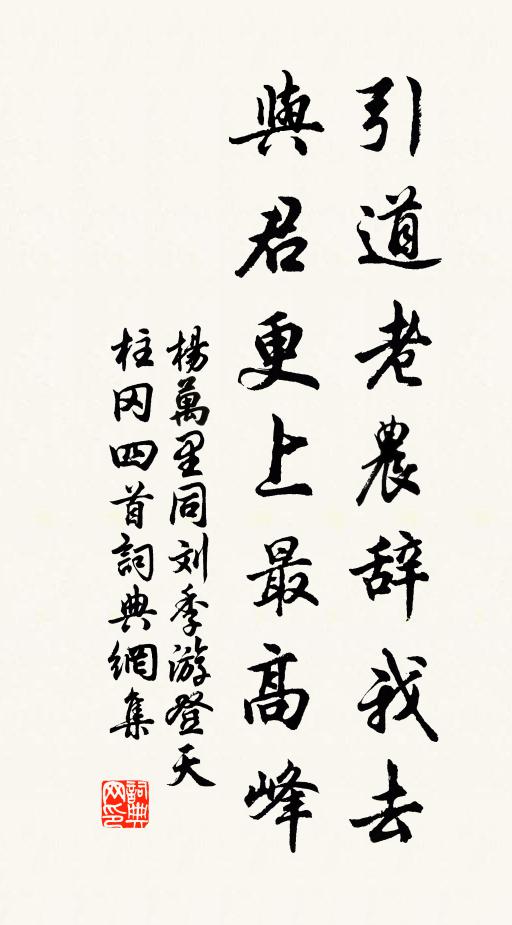 引道老農辞我去
與君更上最高峰
楊萬里同刘季游登天
柱冈四首詞典網集
詞典
网印